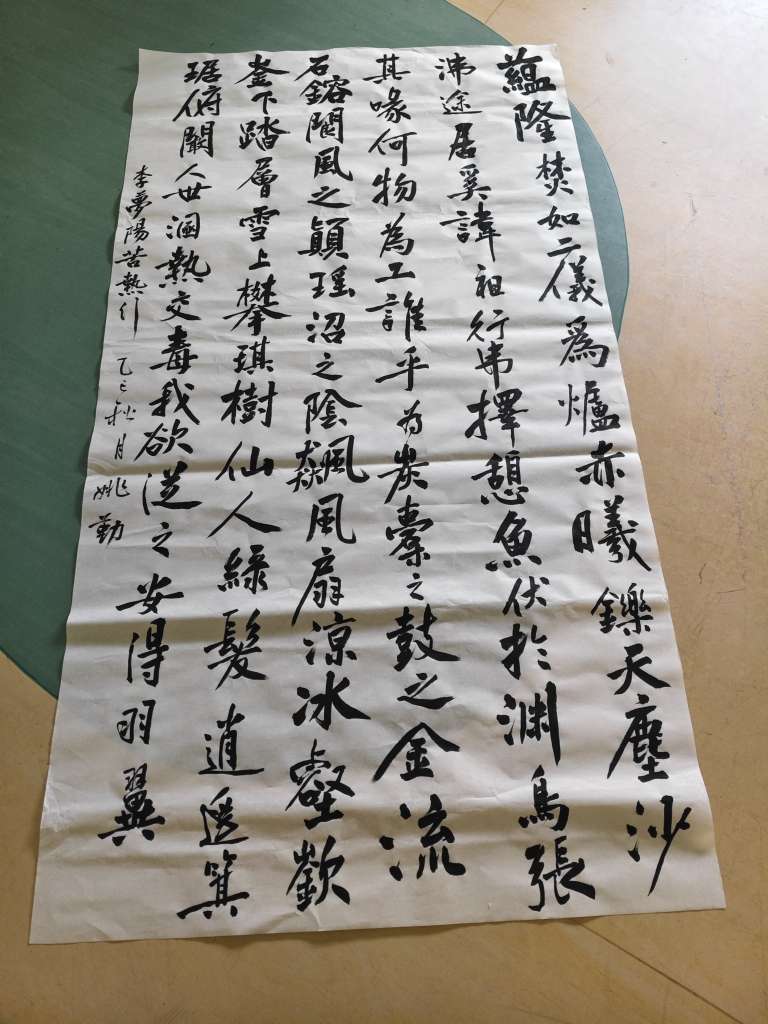 蘊隆焚如二儀為爐赤曦鑠天塵沙
沸途居奚諱袒行弗擇憩魚伏於淵鳥張
其喙何物為工誰乎為炭橐之鼓之金流
石鎔閬風之顛瑤沼之陰飆風扇涼冰壑欹
崟下踏層雪上攀琪樹仙人綠髮逍遥箕
琚俯闞人世溷熱交毒我欲從之安得羽翼
李夢陽苦熱行 乙巳秋月姚勤